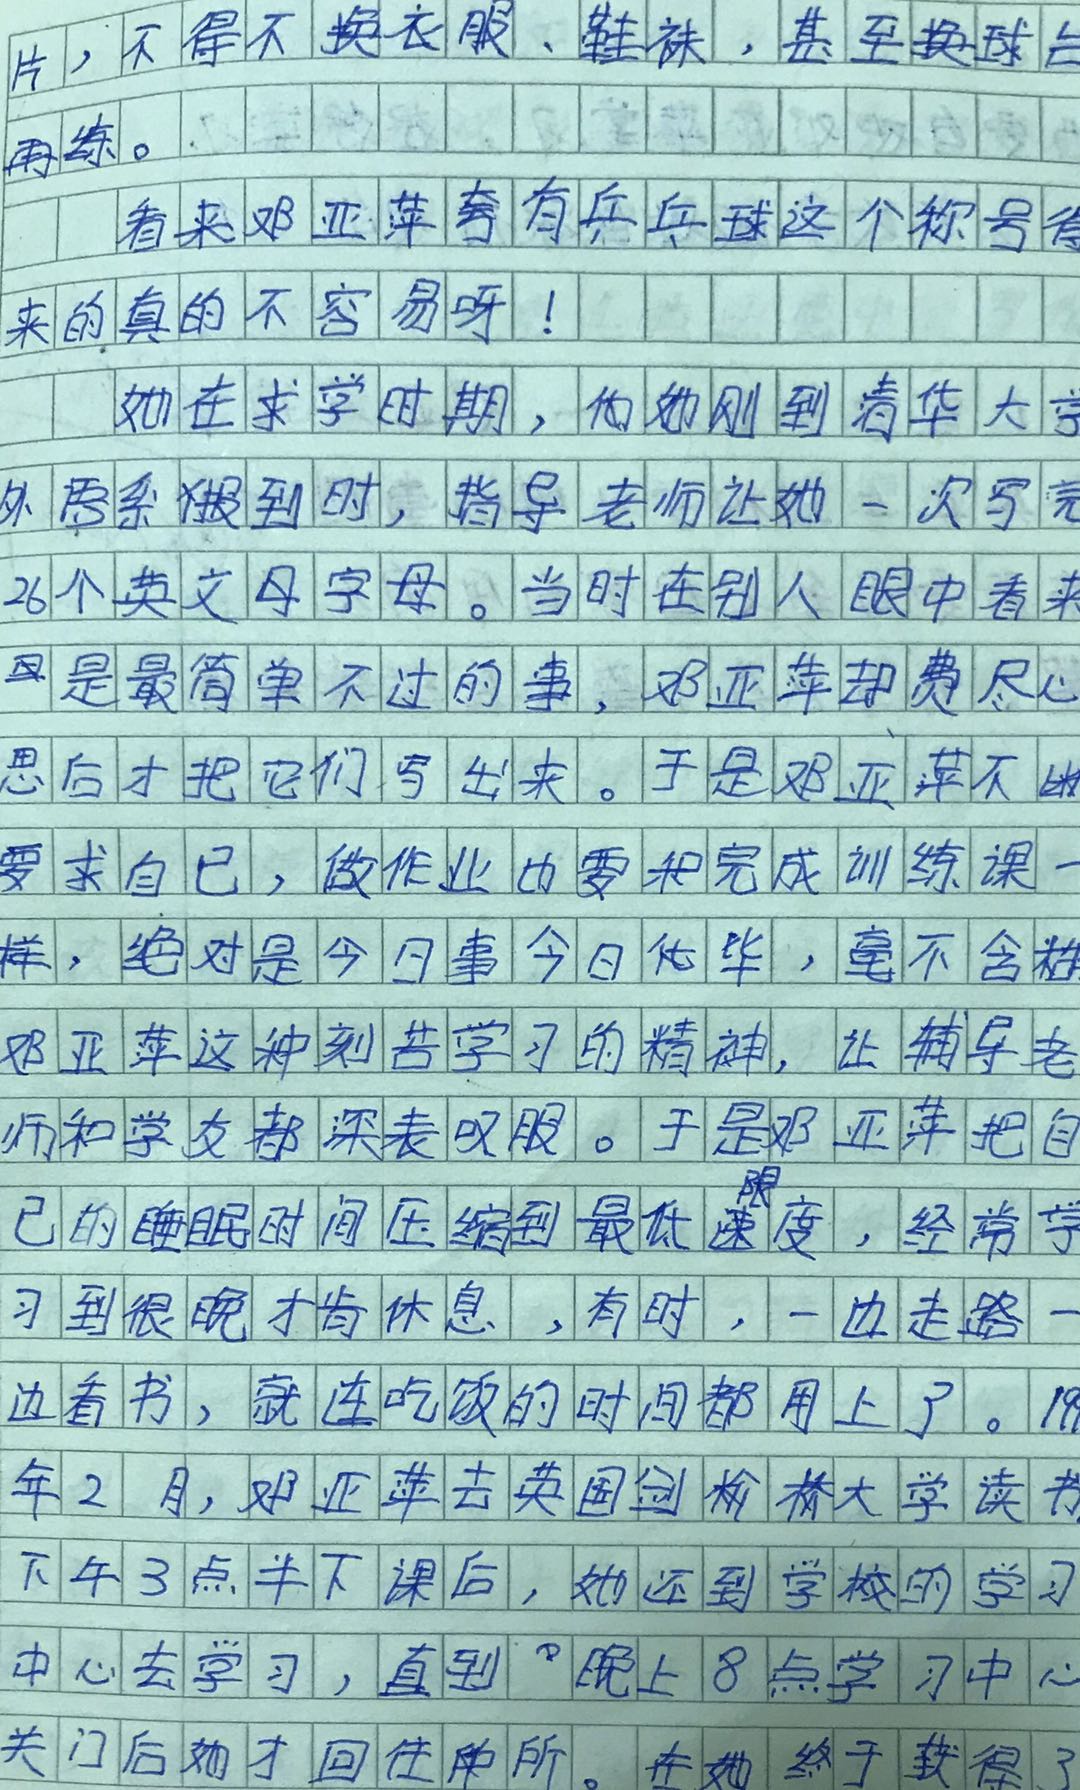 片，不得不换衣服、鞋袜，甚至换球台
再练。
看来邓亚萍夸有乒乓球这个称号得
来的真的不容易呀！
她在求学时期，她刚到清华大学
外语系报到时，指导老师让她一次写完
26个英文母字母。当时在别人眼中看来
是最简单不过的事，邓亚萍却费尽心
思后才把它们写出来。于是邓亚萍不断
要求自己，做作业也要和完成训练课一
样，绝对是今日事今日毕，毫不含糊
邓亚萍这种刻苦学习的精神，让辅导老
师和学友都深表叹服。于是邓亚萍把自
己的睡眠时间压缩到最低限度，经常学
习到很晚才肯休息，有时，一边走路一
边看书，就连吃饭的时间都用上了。19
年2月，邓亚萍去英国剑桥大学读书
下午3点半下课后，她还到学校的学习
中心去学习，直到晚上8点学习中心
关门后她才回住所。在她终于获得了